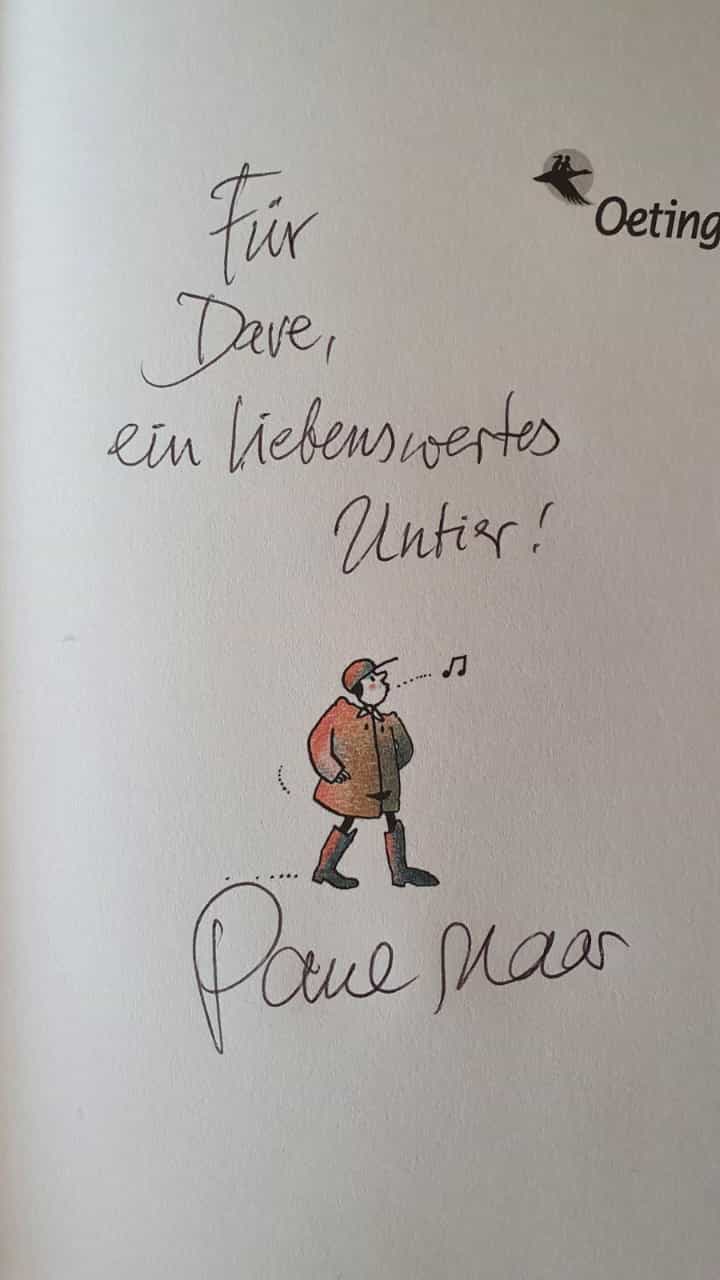 Für
Oeting
Dave,
ein liebenswertes
Untier!
Paul Maar